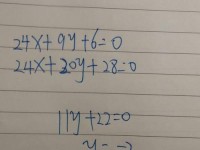 24x+9y+6=0
24x+20y+28=0
11y+22=0
y=-2